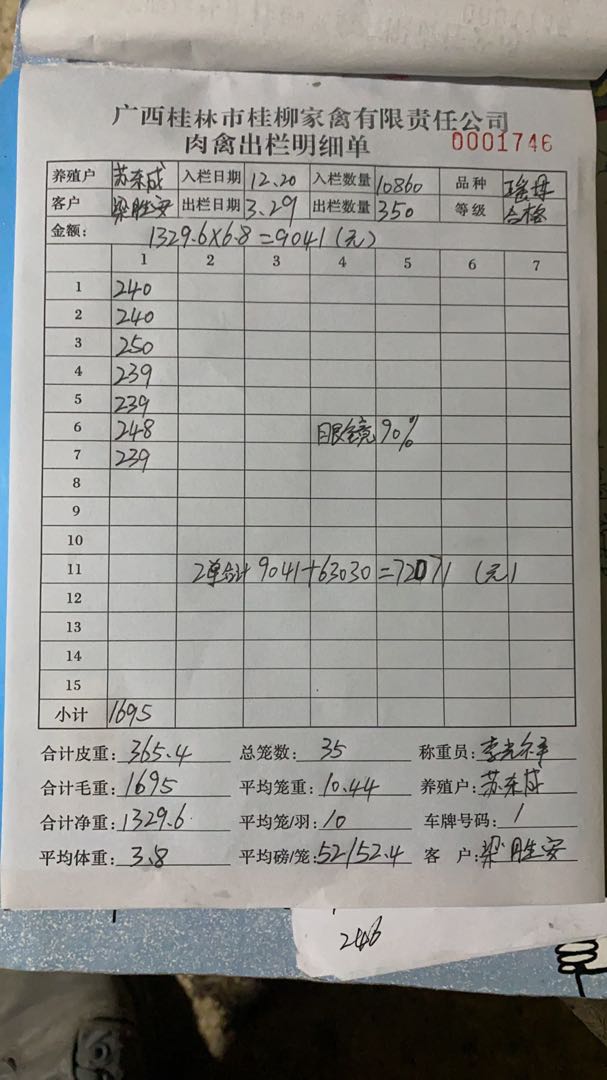 广西桂林市桂柳家禽有限责任公司
肉禽出栏明细单 0001746
养殖户 苏东成 入栏日期 12.20 入栏数量 10860 品种 瑶母
客户 梁胜安 出栏日期 3.29 出栏数量 350 等级 合格
金额: 1329.6×6.8=9041(元)
1 2 3 4 5 6 7
1 240
2 240
3 250
4 239
5 239
6 248 眼镜90%
7 239
8
9
10
11 2单合计9041+63030=72071 (元)
12
13
14
15
小计 1695
合计皮重: 365.4 总笼数: 35 称重员: 李
合计毛重: 1695 平均笼重: 10.44 养殖户: 苏东成
合计净重: 1329.6 平均笼/羽: 10 车牌号码: 1
平均体重: 3.8 平均磅/笼: 52/52.4 客 户: 梁胜安
246